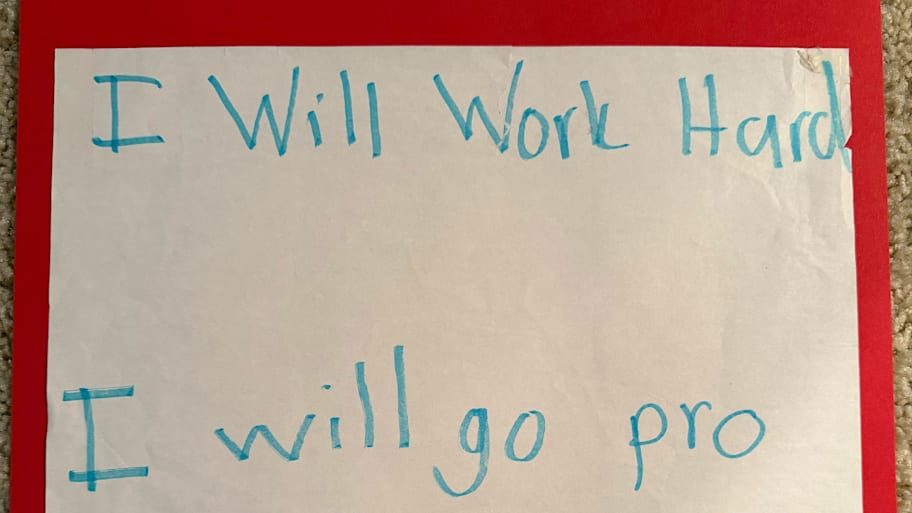 I Will Work Hard
I will go pro